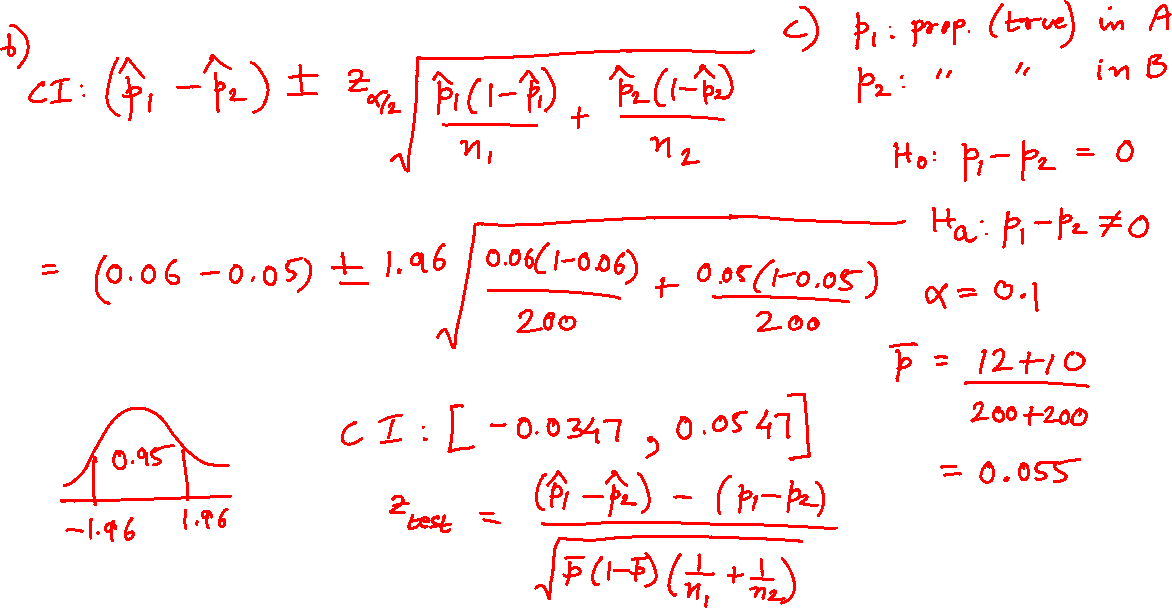 b)
CI: (p̂₁ - p̂₂) ± z_{α/2} √( p̂₁(1-p̂₁)/n₁ + p̂₂(1-p̂₂)/n₂ )
= (0.06 - 0.05) ± 1.96 √( 0.06(1-0.06)/200 + 0.05(1-0.05)/200 )
0.95
-1.96 1.96
CI: [-0.0347, 0.0547]
z_test = ( (p̂₁ - p̂₂) - (p₁-p₂) ) / √( p̄(1-p̄)(1/n₁ + 1/n₂) )
c) p₁: prop. (true) in A
p₂: " " in B
H₀: p₁ - p₂ = 0
Hₐ: p₁ - p₂ ≠ 0
α = 0.1
p̄ = (12+10)/(200+200)
= 0.055